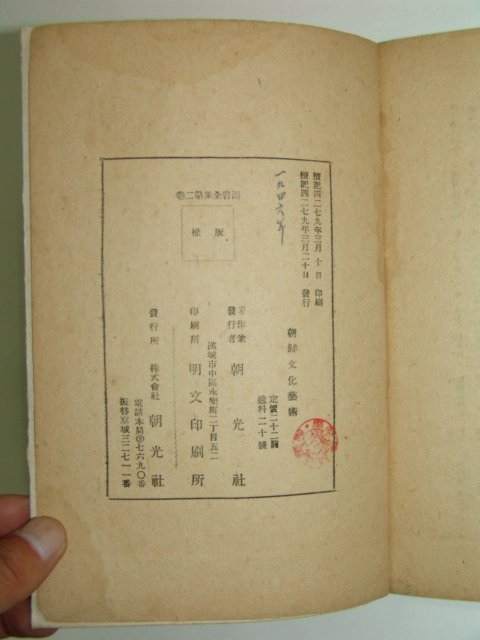 檀記四二七九年三月十日 印刷
檀記四二七九年三月二十日 發行
一九四六年
朝鮮文化藝術
定價二十二圓
送料二十錢
湖岩全集第二卷
版權
著作兼
發行者 朝光社
漢城市中區永樂町二丁目五二
印刷所 明文印刷所
發行所 株式會社 朝光社
電話本局②七六九〇番
振替京城三二七一一番